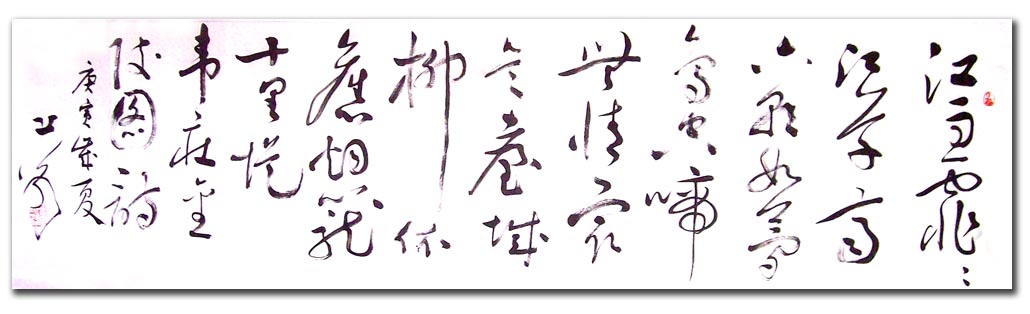 江雨霏〻
江草齊
六朝如夢
鳥空啼
無情最
是臺城
柳依
舊烟籠
十里堤
韋莊金
陵圖詩
庚寅歲夏